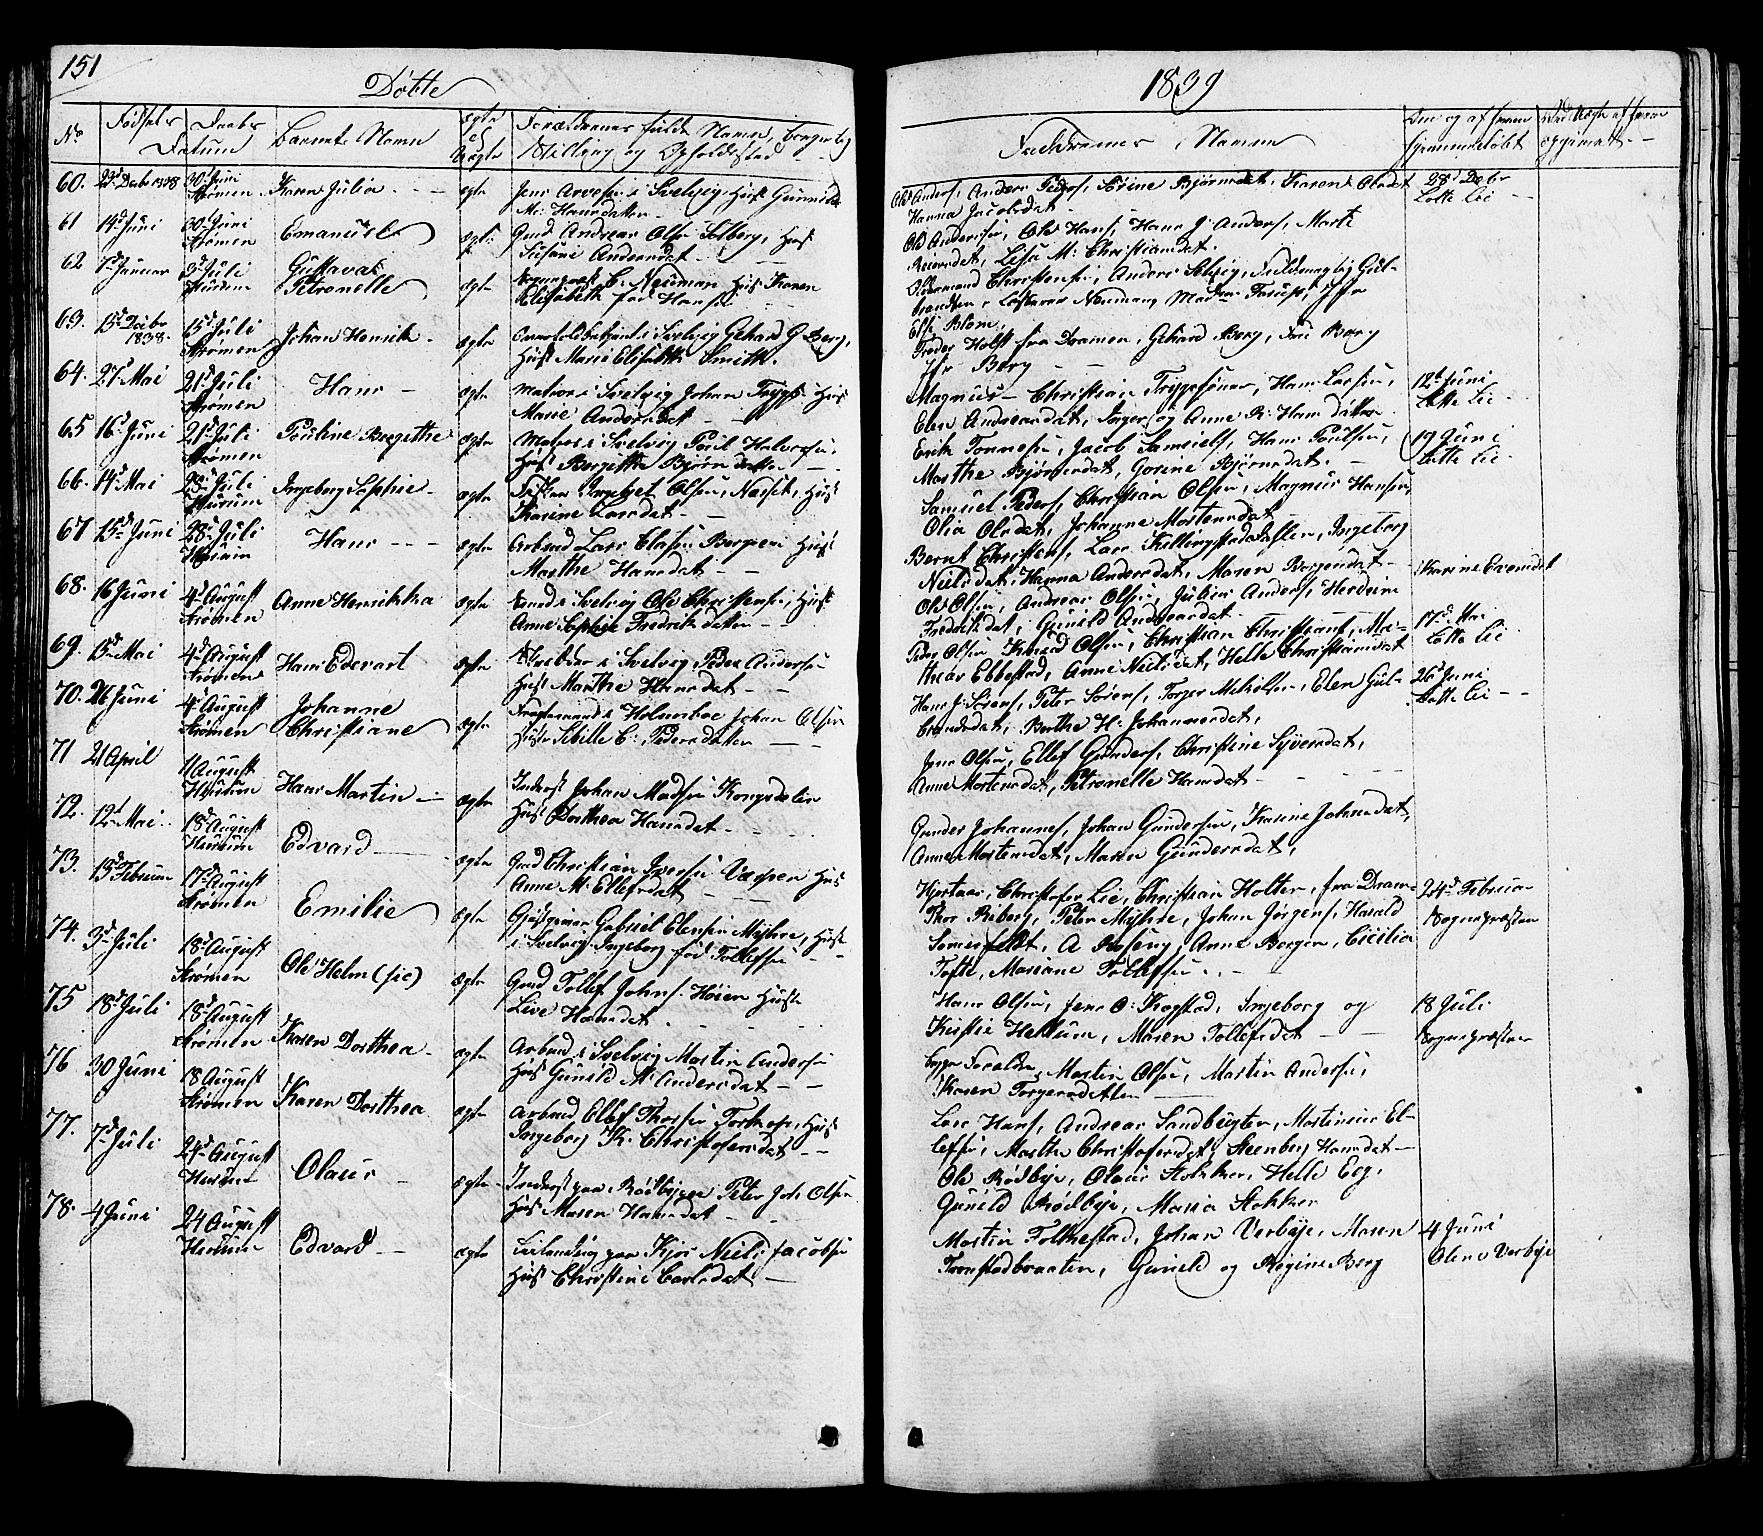 151
Döbte
1839
No
Fødsels
Daabs
Datum
Barnets Navn
ægte
el
uægte
Forældrenes fulde Navne, borgerlig
Stilling og Opholdssted
Faddernes Navne
60. 23d Decbr 1838 30t Juni Strømen Karen Julia ægte
Jens Arvesen i Svelvig, Hust Gunnild
M: Hansdatter
Ole Anders, Anders Peders, Sørine Bjørnsdat, Karen Olsdat
Hanna Jacobsdat
28d Decbr
Lotte Lie
61 14d Juni 30t Juni Strømen Emanuel ægte
Gmd Andreas Olsen Solberg, Hust
Susane Andersdat
Ole Andersen, Ole Hans, Hans J: Anders, Marte
Reiersdat, Lisa M: Christiansdat.
62 1d Januar 3d Juli Hurum Gustava
Petronelle ægte
C. Neuman Hust Karen
Elisabeth fød Hansen
Christensen, Anders Selvig, Fuldmægtig Gul-
brandsen, Neumann, Madm
Else Blom
63. 15d Decbr 1838. 15d Juli Strømen Johan Henrik ægte
i Svelvig Gehard G Berg,
Hust Marie Elisabeth Smith
Peder Holst fra Dramen, Gehard Berg, Frü Berg
Jfr Berg
64. 27d Mai 21d Juli Strømen Hans ægte
Matros i Svelvig Johan Trygs: Hust
Maria Andersdat
Magnus Christian Tryggesønner, Hans Larsen,
Elen Andersdat, Inger og Anne K: Hansdatter
12d Juni
Lotte Lie
65 16d Juni 21d Juli Strømen Pouline Bergethe ægte
Matros i Svelvig Poul Halvorsen,
Hust Bergitte Bjørnsdatter
Erik Tønnesen, Jacob Samuels, Hans Poulsen,
Marthe Bjørnsdat, Gorine Bjørnsdat.
19 Juni
Lotte Lie
66. 14d Mai Juli Hurum Ingeborg Sophie ægte
Olsen, Næsset, Hust
Karine Larsdat
Samuel Peders, Christian Olsen, Magnus Hansen,
Olia Olsdat, Johanne Mortensdat
67 15d Juni 28d Juli Hurum Hans ægte
Arbmd Lars Clasen Bergeri Hust
Marthe Hansdat
Bernt Christens, Lars Killingstad, Ingeborg
Nielsdat, Hanna Andersdat, Maren Borgersdat
Karine Evensdat
68. 16 Juni 4d August Strømen Anne Henrikka ægte
i Svelvig Ole Christensen, Hust
Anne Sophie Fredriksdatter
Ole Olsen, Andreas Olsen, Julius Anders,
Fredriksdat, Gunild Andreasdat
69. 15d Mai 4d August Strømen Hans Edevart ægte
i Svelvig Peder Andersen
Hust Marthe Hansdat
Peder Olsen, Knud Olsen, Christian Christians, Ma-
thias Ebbestad, Anne Nielsdat, Helle Christiansdat
17d Mai
Lotte Lie
70. 26 Juni 4d August Strømen Johanne
Christiane ægte
i Holmsboe Johan Olsen
Hust Sibille C: Pedersdatter
Hans J: Sörens, Peter Sörens, Torger Mikkelsen, Elen Gul-
brandsdat, Berthe H: Johannesdat,
26d Juni
Lotte Lie
71 21 April 11 August Hurum Hans Martin ægte
Inderst Johan Madsen Kongsdelen
Hust Dorthea Hansdat
Jens Olsen, Ellef Gunders, Christine Syversdat,
Anne Mortensdat, Petronelle Hansdat
72. 12d Mai 18d August Hurum Edvard ægte
Gmd Christian Iversen Verpen Hust
Anne M: Ellefsdat
Gunder Johannes, Johan Gundersen, Karine Johnsdat,
Anne Mortensdat, Maren Gundersdat,
73. 13d Februar 17d August Strømen Emilie ægte
Gjæstgiver Gabriel Elensen Myhre, Hust
i Svelvig Ingeborg fød Tollefsen
Christofer Lie, Christian Holter, fra Dram-
Thor Reberg, Peter Myhre, Johan Jørgens, Harald
Somerfeldt, A Roseng, Anne Borgen, Cicilia
Tofte, Mariane Tollefsen
24d Februar
Sognepræsten
74. 3d Juli 18d August Strømen Ole Helm (sic) ægte
Gmd Tollef Johns. Høien Hust
Live Hansdat
Hans Olsen, Jens O: Kragstad, Ingeborg og
Kirstie Hellum, Maren Tollefsdat
18 Juli
Sognepræsten
75 18d Juli 18d August Strømen Karen Dorthea ægte
Arbmd i Svelvig Martin Andersen
Hust Gunild M: Andersdat
begge Forældre, Martin Olsen, Martin Andersen,
Karen Torgersdatter
76 30 Juni 18 August Strømen Karen Dorthea ægte
Arbmd Ellef Thorsen Hust
Ingeborg K: Christofersdat
Lars Hans, Andreas Sandbugten, Mortinius El-
lefsen, Marthe Christofersdat, Steenberg Hansdat
77. 7d Juli 24d August Hurum Olaus ægte
Inderst paa Rødbyeie Peter Joh: Olsen
Hust Maren Hansdat
Ole Rödbye, Olaus Stokker, Helle Eeg,
Gunild Rödbye, Maria Stokker
78. 4 Juni 24 August Hurum Edvard ægte
Leilending paa Kjos Niels Jacobsen
Hust Christine Carlsdat
Martin Folkestad, Johan Verbye, Maren
Tronstadbraaten, Gunild og Regine Berg
4 Juni
Oline Verbye